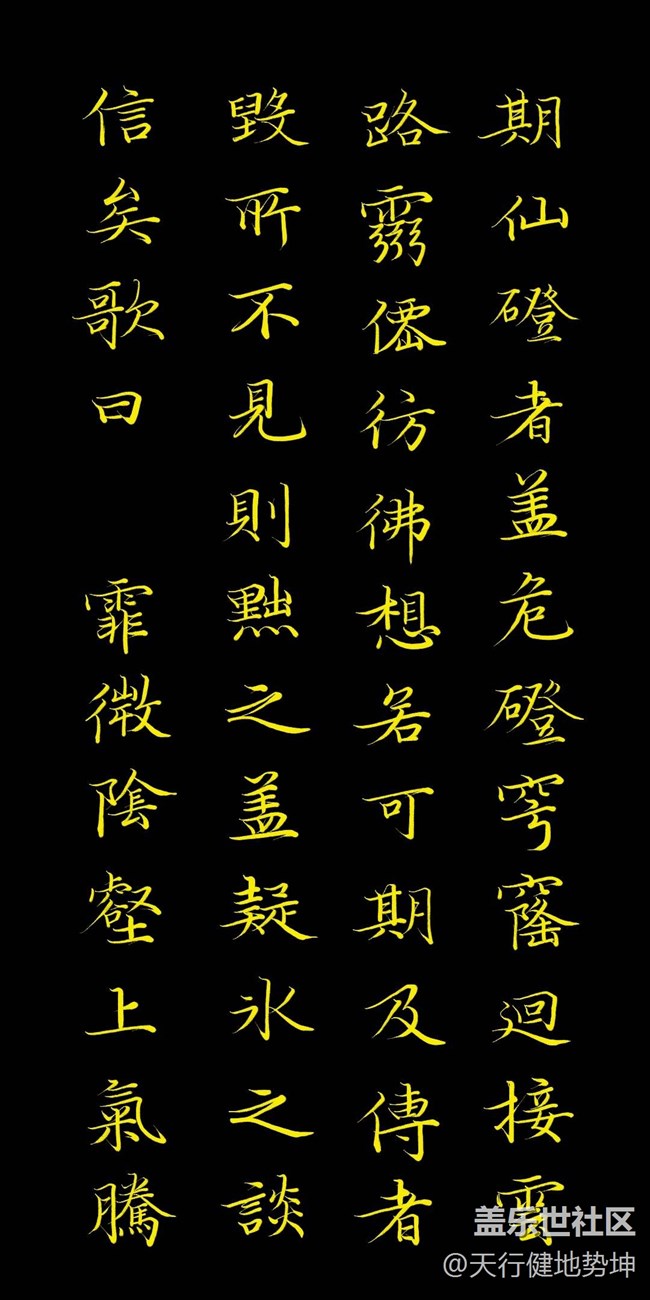 期仙磴者盖危磴穹窿迴接雲
路靈僊彷彿想若可期及傳者
毀所不見則黜之盖疑氷之談
信矣歌曰 霏微陰壑上氣騰
盖乐世社区
@天行健地势坤